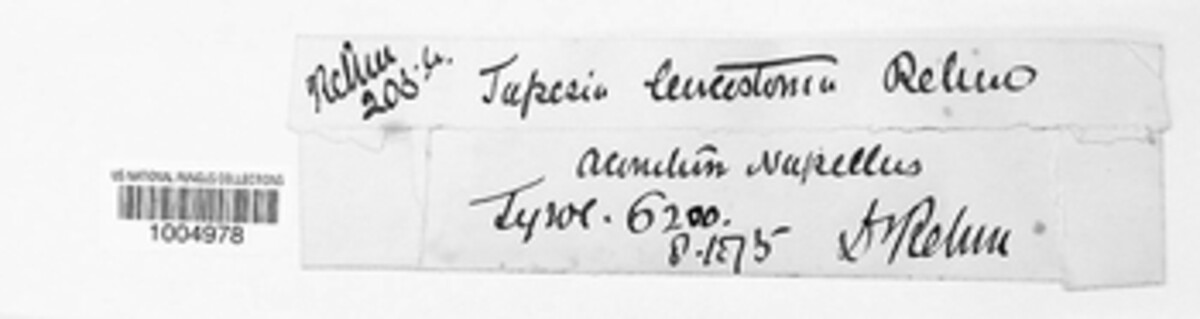 Rehm
205.b.
Tapesia leucostoma Rehm
Aconitum Napellus
Tyrol. 6200.
8.1875 Dr Rehm
US NATIONAL FUNGUS COLLECTIONS
1004978